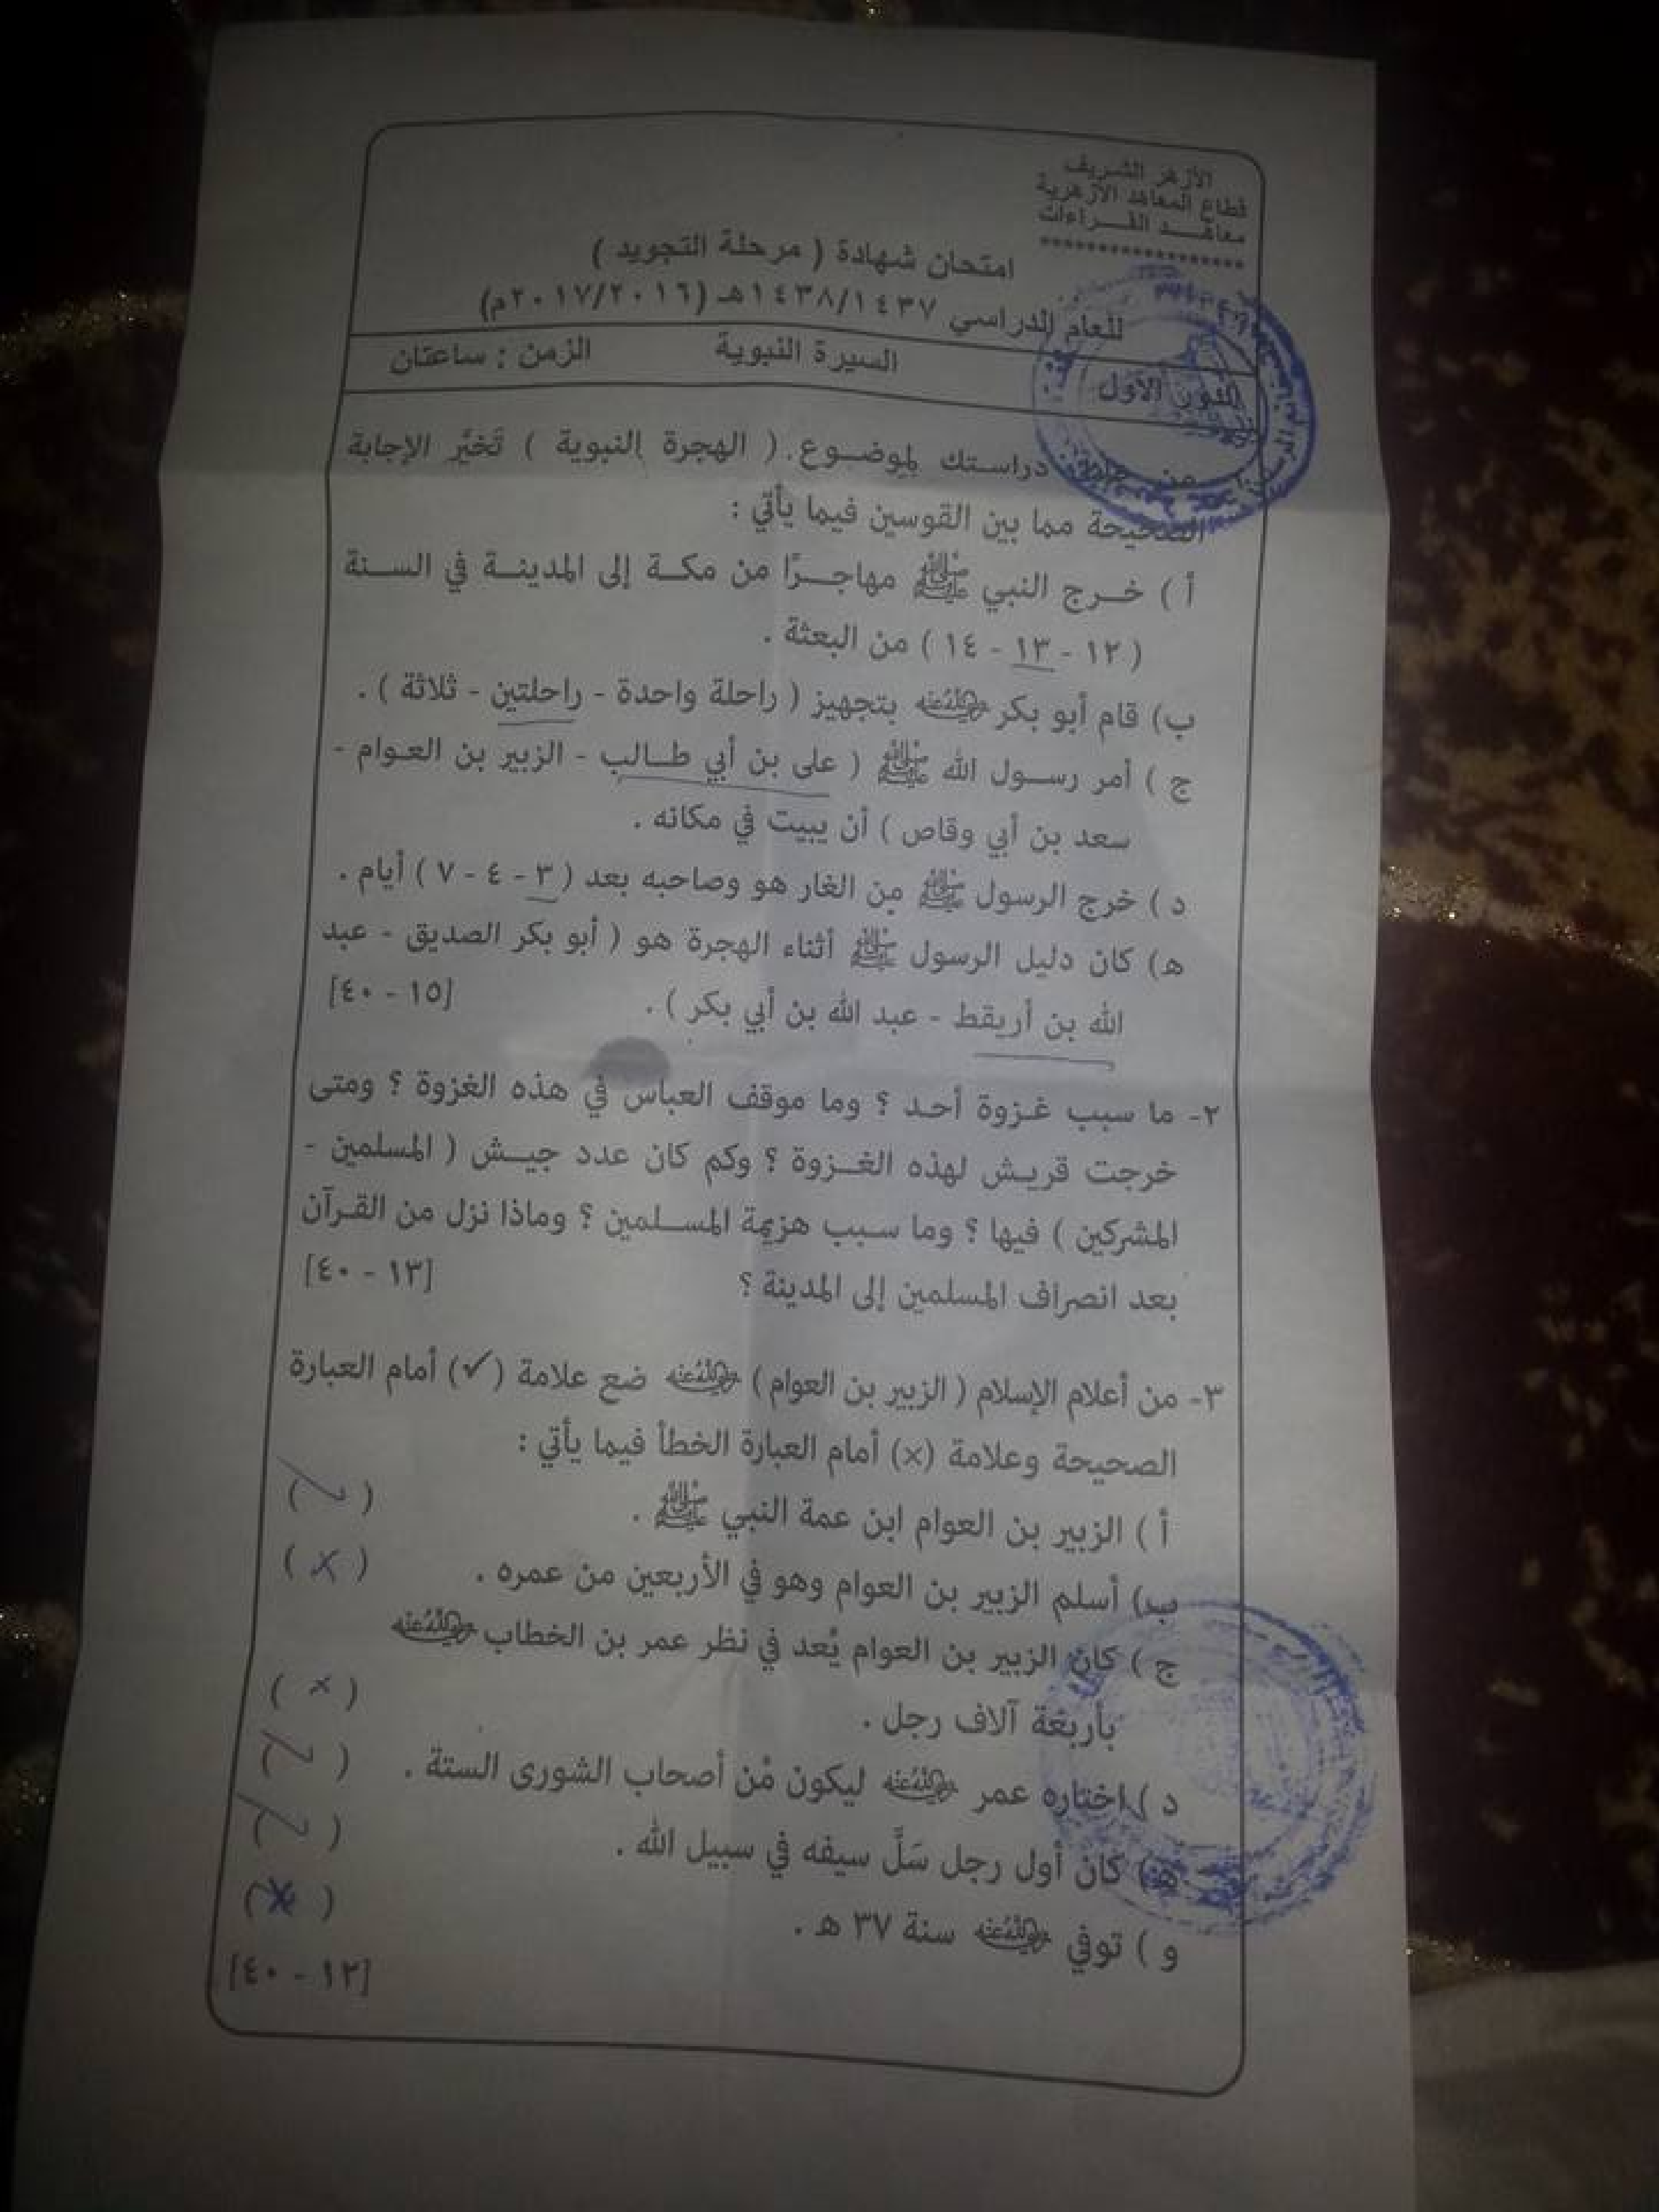 الأزهر الشريف
قطاع المعاهد الأزهرية
معاهد القراءات
امتحان شهادة ( مرحلة التجويد )
للعام الدراسي ١٤٣٨/١٤٣٧هـ (٢٠١٧/٢٠١٦م)
الدور الأول السيرة النبوية الزمن : ساعتان
من خلال دراستك لموضوع . ( الهجرة النبوية ) تَخيَّر الإجابة
الصحيحة مما بين القوسين فيما يأتي :
أ ) خرج النبي ﷺ مهاجرًا من مكة إلى المدينة في السنة
( ١٢ - ١٣ - ١٤ ) من البعثة .
ب) قام أبو بكر رضي الله عنه بتجهيز ( راحلة واحدة - راحلتين - ثلاثة ) .
ج ) أمر رسول الله ﷺ ( على بن أبي طالب - الزبير بن العوام -
سعد بن أبي وقاص ) أن يبيت في مكانه .
د ) خرج الرسول ﷺ من الغار هو وصاحبه بعد ( ٣ - ٤ - ٧ ) أيام .
هـ) كان دليل الرسول ﷺ أثناء الهجرة هو ( أبو بكر الصديق - عبد
الله بن أريقط - عبد الله بن أبي بكر ) . [١٥ - ٤٠]
٢- ما سبب غزوة أحد ؟ وما موقف العباس في هذه الغزوة ؟ ومتى
خرجت قريش لهذه الغزوة ؟ وكم كان عدد جيش ( المسلمين -
المشركين ) فيها ؟ وما سبب هزيمة المسلمين ؟ وماذا نزل من القرآن
بعد انصراف المسلمين إلى المدينة ؟ [١٣ - ٤٠]
٣- من أعلام الإسلام ( الزبير بن العوام ) رضي الله عنه ضع علامة (✓) أمام العبارة
الصحيحة وعلامة (×) أمام العبارة الخطأ فيما يأتي :
أ ) الزبير بن العوام ابن عمة النبي ﷺ . ( ✓ )
ب) أسلم الزبير بن العوام وهو في الأربعين من عمره . ( × )
ج ) كان الزبير بن العوام يُعد في نظر عمر بن الخطاب رضي الله عنه
بأربعة آلاف رجل . ( × )
د ) اختاره عمر رضي الله عنه ليكون مْن أصحاب الشورى الستة . ( ✓ )
هـ) كان أول رجل سَلَّ سيفه في سبيل الله . ( ✓ )
و ) توفي رضي الله عنه سنة ٣٧ هـ . ( × )
[١٢ - ٤٠]